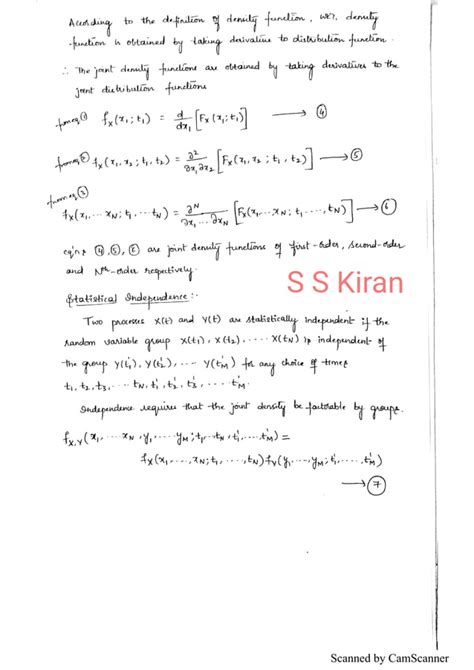 According to the definition of density function, WKT, density
function is obtained by taking derivative to distribution function.
∴ The joint density functions are obtained by taking derivatives to the
joint distribution functions
from eq ① fX(x1; t1) = d/dx1 [FX(x1; t1)] → ④
from eq ② fX(x1, x2; t1, t2) = ∂²/∂x1 ∂x2 [FX(x1, x2; t1, t2)] → ⑤
from eq ③
fX(x1, ... xN; t1, ... tN) = ∂^N/∂x1 ... ∂xN [FX(x1, ... xN; t1, ..., tN)] → ⑥
eq'ns ④, ⑤, ⑥ are joint density functions of first-order, second-order
and Nth-order respectively.
S S Kiran
Statistical Independence :-
Two processes X(t) and Y(t) are statistically independent if the
random variable group X(t1), X(t2), ... X(tN) is independent of
the group Y(t1'), Y(t2'), ... Y(tM') for any choice of times
t1, t2, t3, ... tN, t1', t2', t3', ... tM'.
Independence requires that the joint density be factorable by groups.
fX,Y(x1, ... xN, y1, ... yM; t1, ... tN, t1', ... tM') =
fX(x1, ..., xN; t1, ..., tN) fY(y1, ..., yM; t1', ... tM')
→ ⑦
Scanned by CamScanner